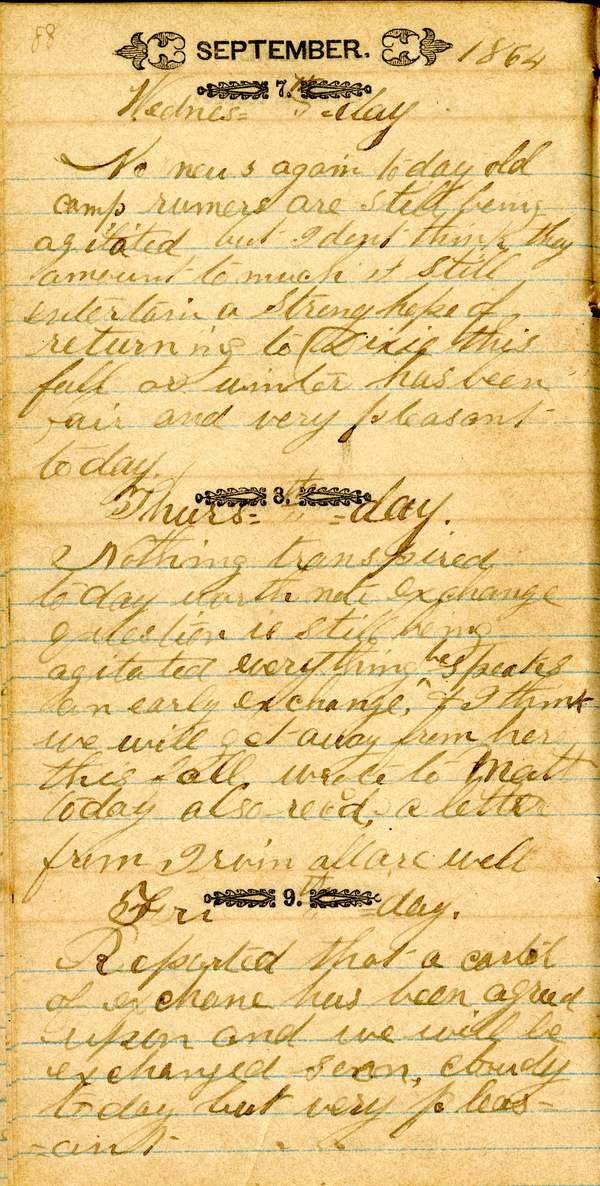 88
SEPTEMBER. 1864
7.th
Wednes=day
No news again to day old
camp rumers are still being
agitated but I dont think they
amount to much is still
entertain a strong hope of
returning to Dixie this
fall or winter has been
fair and very pleasant
to day.
8.th
Thurs=day.
Nothing transpired
to day worth note exchange
question is still being
agitated everything bespeaks
an early exchange, & I think
we will get away from here
this fall wrote to Matt
today also recd, a letter
from Irvin all are well
9.th
Fri=day.
Reported that a cartel
of exchane has been agreed
upon and we will be
exchanged soon, cloudy
to day but very pleas-
-ant